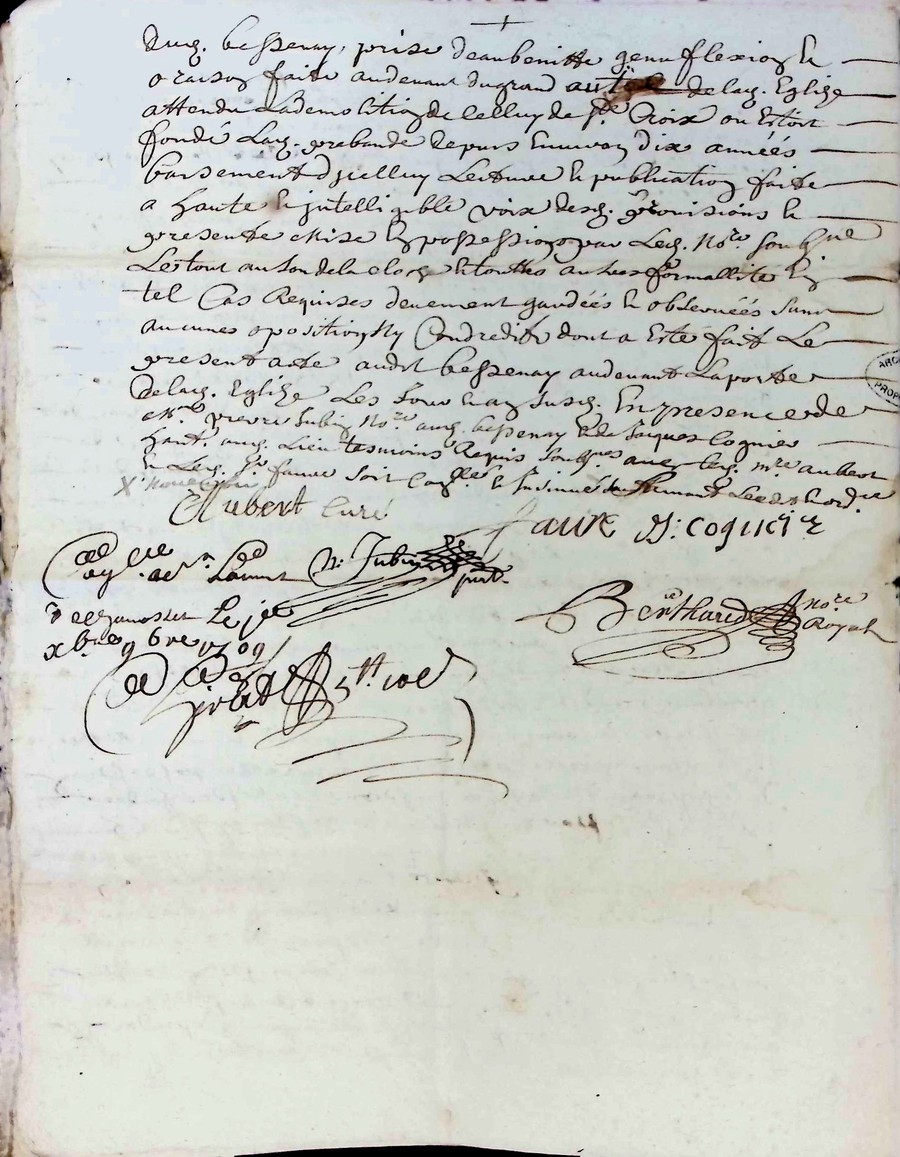 Dud. bessenay, prise deaubenitte genuflexion &
oraison faite audevant dugrand autel delad. Eglize
attendu lademolition de celluy de Ste Croix ou Estoit
fondé Lad. prebande depuis Environ dix années
baisement dicelluy Lecture & publication faite
a haute & jntelligible voix desd. provisions &
presente Mise En possession par Led. Nore soubsne
Le tout au son dela cloche & touttes autres formallité En
tel Cas Requises deuement gardées & observées sans
aucunes oposition Ny Contredit dont a Esté fait Le
present acte audit bessenay audevant Laporte
Delad. Eglize Les Jour & an susd. En presence de
Me pierre Jubin Nore aud. bessenay & de Jacques Cognier
habt. aud. Lieu tesmoins Requis soubsnes avec led. mre aubert
& Led. Sr faure soit
X novembre
Aubert Curé
faure J. cognier
N. Jubin
pnt.
9bre 1709
Berthard nore
Royal
ARC
PROP